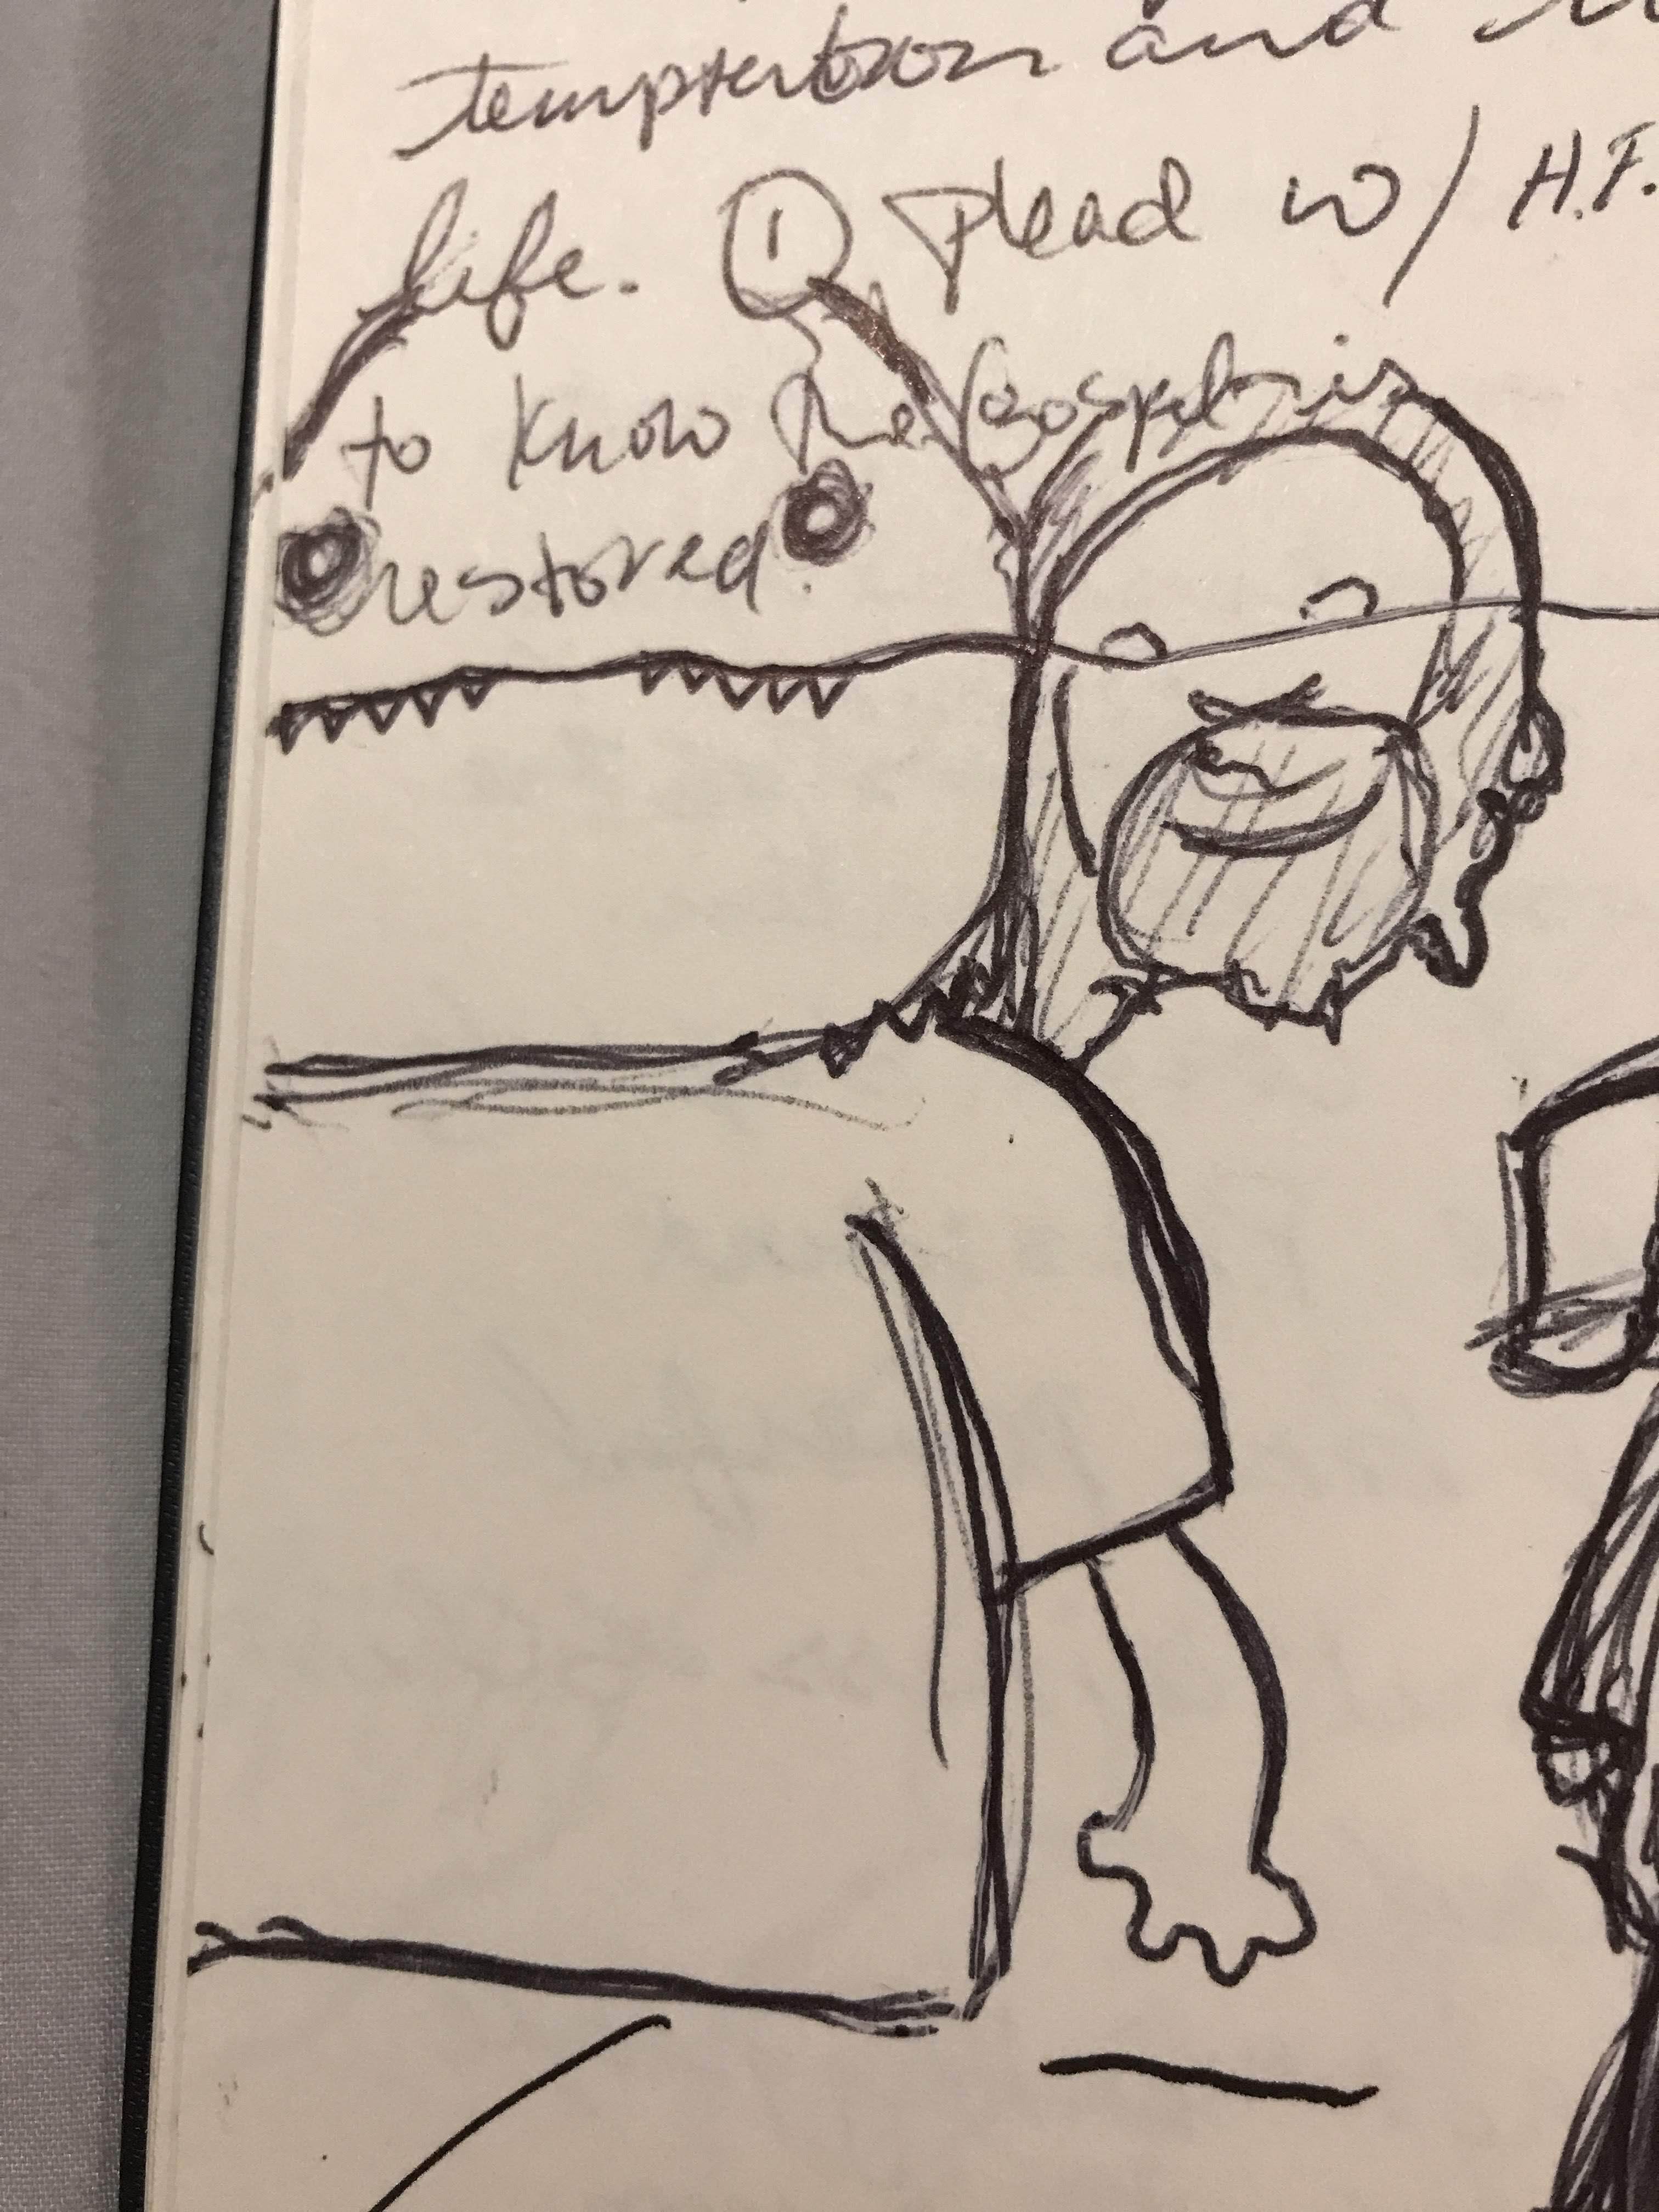 temptation and
life. ① Plead w/ H.F.
to know the Gospel is
restored.